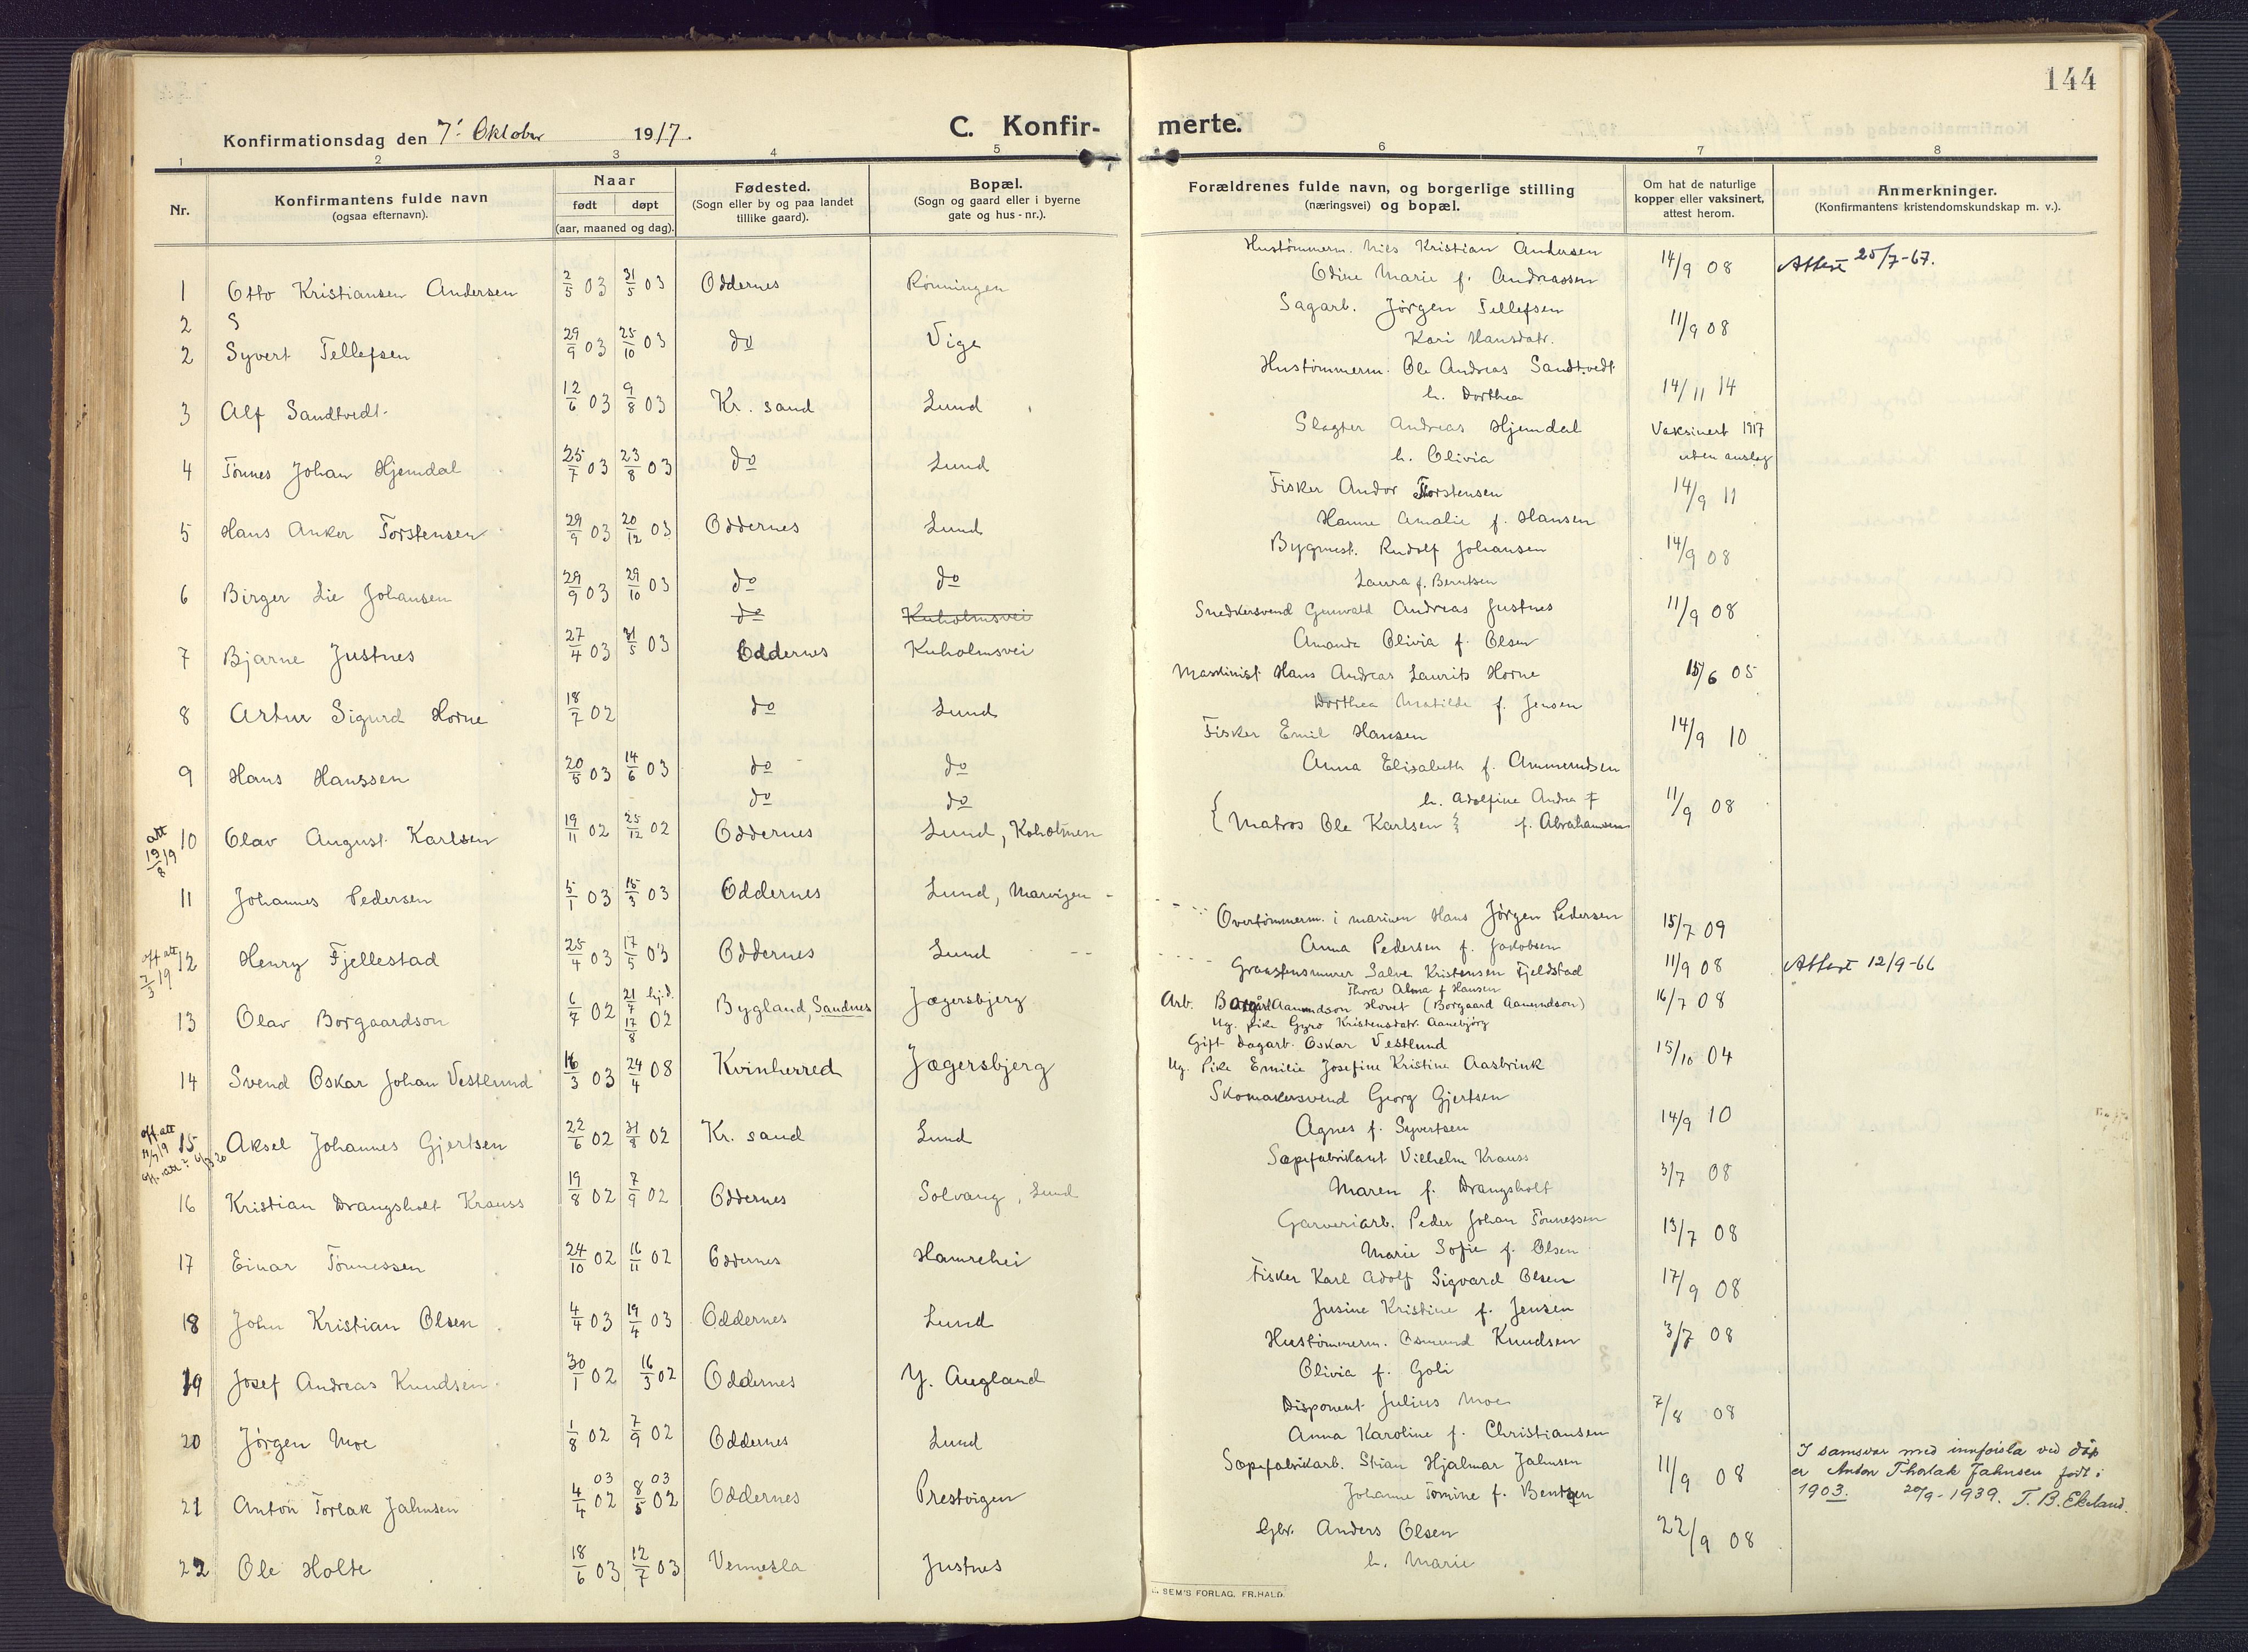 144
Konfirmationsdag den 7' Oktober 1917.
C. Konfir-merte.
1 2 3 4 5 6 7 8
Nr.
Konfirmantens fulde navn
(ogsaa efternavn).
Naar
født døpt
(aar, maaned og dag).
Fødested.
(Sogn eller by og paa landet
tillike gaard).
Bopæl.
(Sogn og gaard eller i byerne
gate og hus-nr.).
Forældrenes fulde navn, og borgerlige stilling
(næringsvei) og bopæl.
Om hat de naturlige
kopper eller vaksinert,
attest herom.
Anmerkninger.
(Konfirmantens kristendomskundskap m. v.).
1 Otto Kristiansen Andersen 2/5 03 31/5 03 Oddernes Rønningen
Hustømmerm. Nils Kristian Andersen 14/9 08 Attest 25/7-67.
Odine Marie f. Andreassen
2 S
2 Syvert Tellefsen 29/9 03 25/10 03 do Vige
Sagarb. Jørgen Tellefsen 11/9 08
Kari Hansdatr.
3 Alf Sandtvedt 12/6 03 9/8 03 Kr. sand Lund
Hustømmerm. Ole Andreas Sandtvedt 14/11 14
h. Dorthea
4 Tønnes Johan Hjemdal 25/7 03 23/8 03 do Lund
Slagter Andreas Hjemdal Vaksinert 1917
h. Olivia uten anslag
5 Hans Anker Torstensen 29/9 03 20/12 03 Oddernes Lund
Fisker Andor Torstensen 14/9 11
Hanne Amalie f. Hansen
6 Birger Lie Johansen 29/9 03 29/10 03 do do
Bygmest. Rudolf Johansen 14/9 08
Laura f. Berntsen
do Kuholmsvei
7 Bjarne Justnes 27/4 03 31/5 03 Oddernes Kuholmsvei
Snedkersvend Gunvald Andreas Justnes 11/9 08
Amanda Olivia f. Olsen
8 Artur Sigurd Horne 18/7 02 do Lund
Maskinist Hans Andreas Laurits Horne 15/6 05
Dorthea Matilde f. Jensen
9 Hans Hanssen 20/5 03 14/6 03 do do
Fisker Emil Hansen 14/9 10
Anna Elisabeth f. Ammundsen
do do
att 19/8 19
10 Olav August Karlsen 19/11 02 25/12 02 Oddernes Lund, Koholmen
h. Adolfine Andrea f 11/9 08
{ Matros Ole Karlsen } f. Abrahamsen
11 Johannes Pedersen 5/1 03 15/3 03 Oddernes Lund, Marvigen
Overtømmerm. i marinen Hans Jørgen Pedersen 15/7 09
Anna Pedersen f. Jakobsen
off att 7/3 19
12 Henry Fjellestad 25/4 03 17/5 03 Oddernes Lund
Granstensmurer Salve Kristensen Fjeldstad 11/9 08 Attest 12/9-66
Thora Alma f Hansen
13 Olav Borgaardson 6/7 02 21/7 hj.d. 17/8 02 Bygland, Sandnes Jægersbjerg
Arb. Aamundson Hovet (Borgaard Aamundson) 16/7 08
Ug. pike Gyro Kristensdatr. Aanebjørg
14 Svend Oskar Johan Vestlund 16/3 03 24/4 08 Kvinherred Jægersbjerg
Gift dagarb. Oskar Vestlund 15/10 04
Ug. Pike Emilie Josefine Kristine Aasbrink
off. att 11/7 19
15 Aksel Johannes Gjertsen 22/6 02 31/8 02 Kr. sand Lund
Skomakersvend Georg Gjertsen 14/9 10
Agnes f. Syvertsen
16 Kristian Drangsholt Krauss 19/8 02 7/9 02 Oddernes Solvang, Lund
Sæpefabrikant Vilhelm Krauss 3/7 08
Maren f. Drangsholt
17 Einar Tønnessen 24/10 02 16/11 02 Oddernes Hamrehei
Garveriarb. Peder Johan Tønnessen 13/7 08
Marie Sofie f. Olsen
18 John Kristian Olsen 4/4 03 19/4 03 Oddernes Lund
Fisker Karl Adolf Sigvard Olsen 17/9 08
Jusine Kristine f. Jensen
19 Josef Andreas Knudsen 30/1 02 16/3 02 Oddernes Y. Augland
Hustømmerm. Osmund Knudsen 3/7 08
Olivia f. Goli
20 Jørgen Moe 1/8 02 7/9 02 Oddernes Lund
Disponent Julius Moe 7/8 08
Anna Karoline f. Christiansen
21 Anton Torlak Jahnsen 4/4 02 03 8/5 02 03 Oddernes Prestvigen
Sæpefabrikarb. Stian Hjalmar Jahnsen 11/9 08
Johanne Tomine f. Bentsen
I samsvar med innførsla ved dåp
er Anton Thorlak Jahnsen født i
1903. 20/9-1939. T. B. Ekeland.
22 Ole Holte 18/6 03 12/7 03 Vennesla Justnes
Gbr. Anders Olsen 22/9 08
h. Marie
SEM'S FORLAG, FR.HALD.